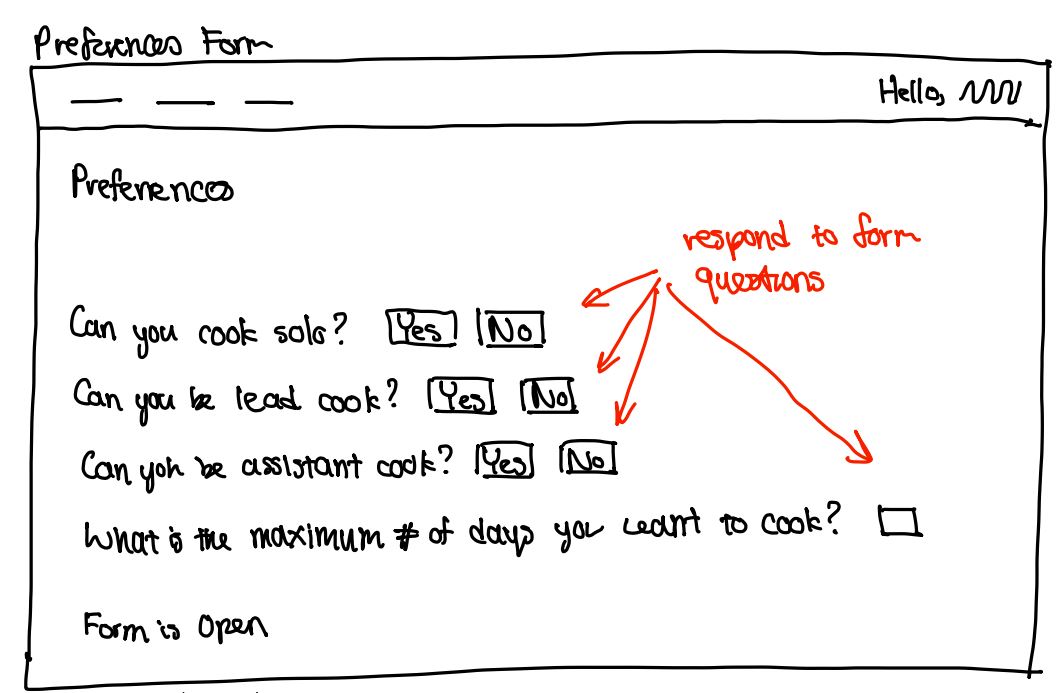 Preferences Form
Hello,
Preferences
respond to form
questions
Can you cook solo? Yes No
Can you be lead cook? Yes No
Can you be assistant cook? Yes No
What is the maximum # of days you want to cook?
Form is Open